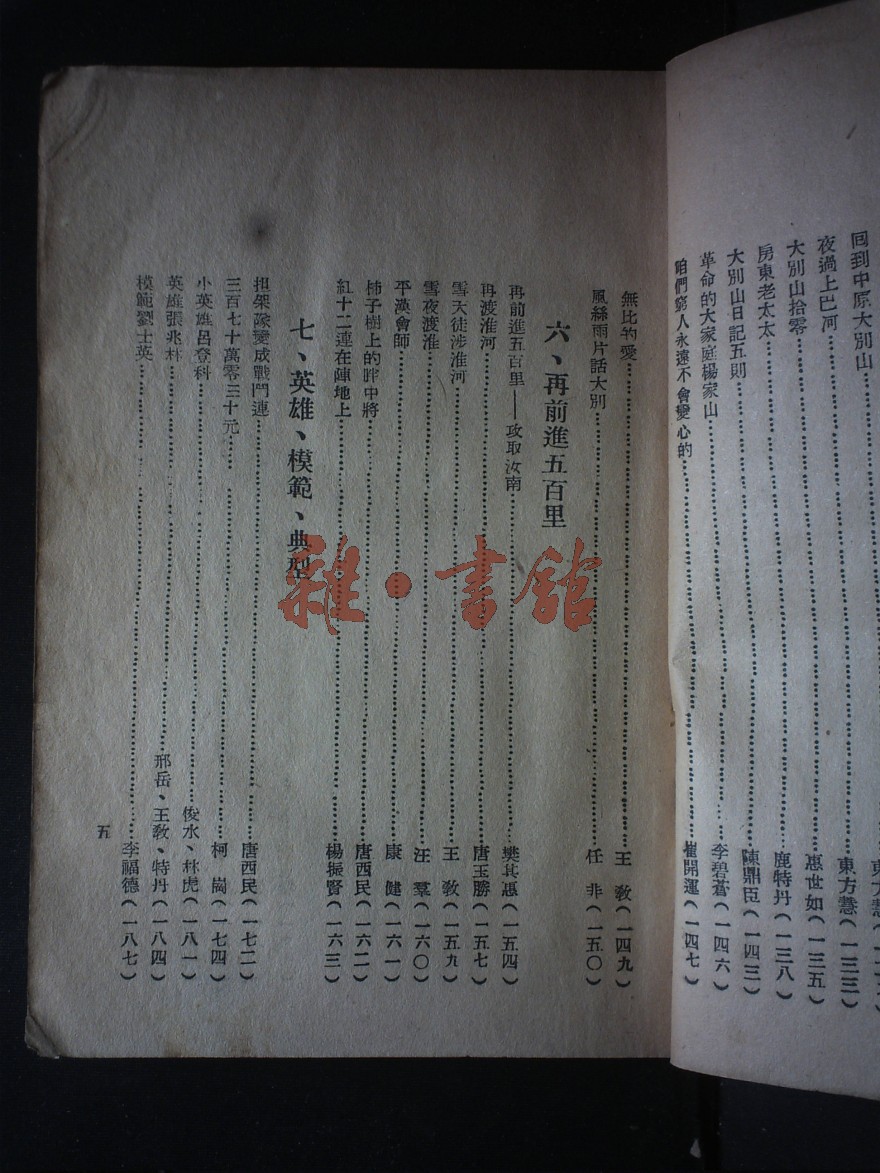 回到中原大別山
夜過上巴河……東方慧（一三三）
大別山拾零……惠世如（一三五）
房東老太太……鹿特丹（一三八）
大別山日記五則……陳鼎臣（一四三）
革命的大家庭楊家山……李碧蒼（一四六）
咱們窮人永遠不會變心的……崔開運（一四七）
無比的愛……王敎（一四九）
風絲雨片話大別……任非（一五〇）
六、再前進五百里
再前進五百里——攻取汝南……樊其憑（一五四）
再渡淮河……唐玉勝（一五七）
雪天徒涉淮河……王敎（一五九）
雪夜渡淮……汪羣（一六〇）
平漢會師……康健（一六一）
柿子樹上的胖中將……唐西民（一六二）
紅十二連在陣地上……楊振賢（一六三）
七、英雄、模範、典型
担架隊變成戰鬥連……唐西民（一七二）
三百七十萬零三十元……柯崗（一七四）
小英雄呂登科……俊水、林虎（一八一）
英雄張兆林……邢岳、王敎、特丹（一八四）
模範劉士英……李福德（一八七）
五
雜·書館